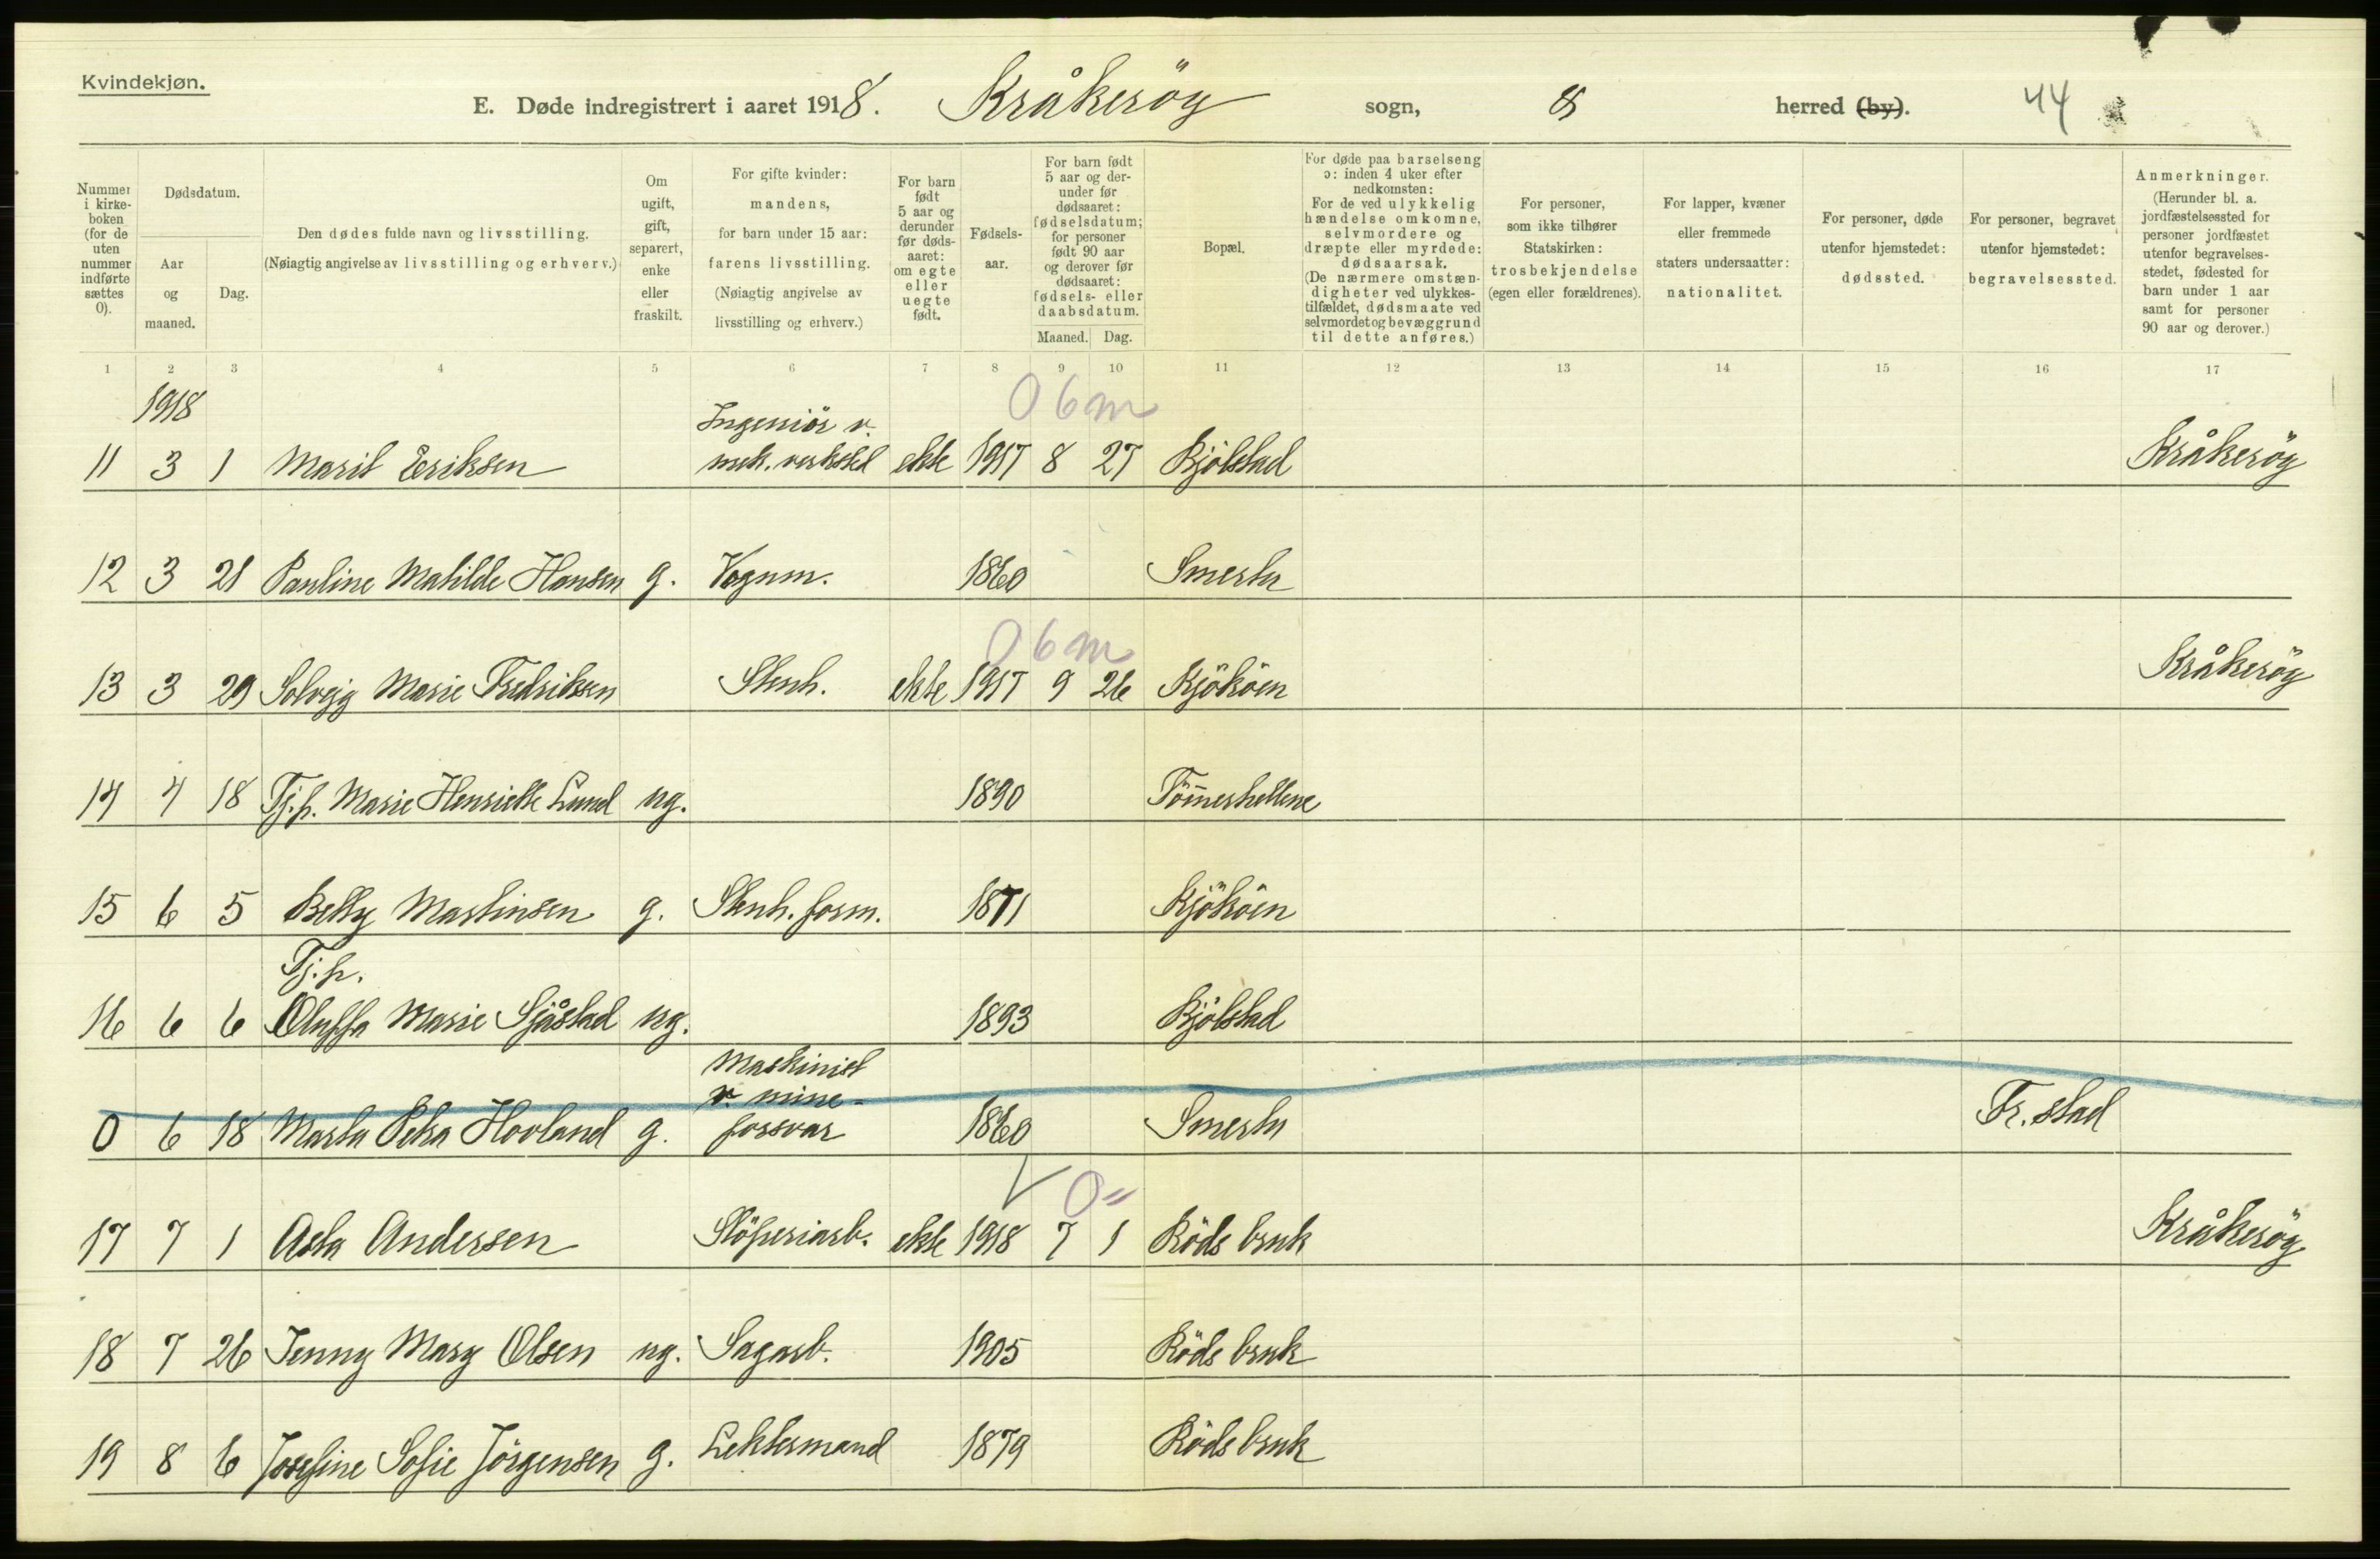 Kvindekjøn.
E. Døde indregistrert i aaret 1918. Kråkeröy sogn, herred (by). 44
Nummer i kirkeboken (for de uten nummer indførte sættes 0).
Dødsdatum.
Aar og maaned.
Dag.
Den dødes fulde navn og livsstilling.
(Nøiagtig angivelse av livsstilling og erhverv.)
Om ugift, gift, separert, enke eller fraskilt.
For gifte kvinder: mandens, for barn under 15 aar: farens livsstilling. (Nøiagtig angivelse av livsstilling og erhverv.)
For barn født 5 aar og derunder før dødsaaret: om egte eller uegte født.
Fødselsaar.
For barn født 5 aar og derunder før dødsaaret: fødselsdatum; for personer født 90 aar og derover før dødsaaret: fødsels- eller daabsdatum.
Maaned. Dag.
Bopæl.
For døde paa barselseng ɔ: inden 4 uker efter nedkomsten: For de ved ulykkelig hændelse omkomne, selvmordere og dræpte eller myrdede: dødsaarsak. (De nærmere omstændigheter ved ulykkestilfældet, dødsmaate ved selvmordet og bevæggrund til dette anføres.)
For personer, som ikke tilhører Statskirken: trosbekjendelse (egen eller forældrenes).
For lapper, kvæner eller fremmede staters undersaatter: nationalitet.
For personer, døde utenfor hjemstedet: dødssted.
For personer, begravet utenfor hjemstedet: begravelsessted.
Anmerkninger. (Herunder bl. a. jordfæstelsessted for personer jordfæstet utenfor begravelsesstedet, fødested for barn under 1 aar samt for personer 90 aar og derover.)
1 2 3 4 5 6 7 8 9 10 11 12 13 14 15 16 17
1918
0 6 m
Ingeniör v.
11 3 1 Marit Eriksen mek. verksted ekte 1917 8 27 Bjölstad Kråkeröy
12 3 21 Pauline Matilde Hansen g. Vognm. 1860 Smertu
0 6 m
13 3 29 Solveig Marie Fredriksen Stenh. ekte 1917 9 26 Kjököen Kråkeröy
14 4 18 Tj.p. Marie Henriette Lund ug. 1890 Tömmerhellene
15 6 5 Betty Martinsen g. Stenh. form. 1871 Kjököen
Tj.p.
16 6 6 Oluffa Marie Sjåstad ug. 1893 Bjölstad
Maskinist
v. mine-
0 6 18 Marta Petra Hovland g. forsvar 1860 Smertu Fr.stad
0
17 7 1 Asta Andersen Stöperiarb. ekte 1918 7 1 Röds bruk Kråkeröy
18 7 26 Jenny Mary Olsen ug. Sagarb. 1905 Röds bruk
19 8 6 Josefine Sofie Jörgensen g. Lektermand 1879 Röds bruk